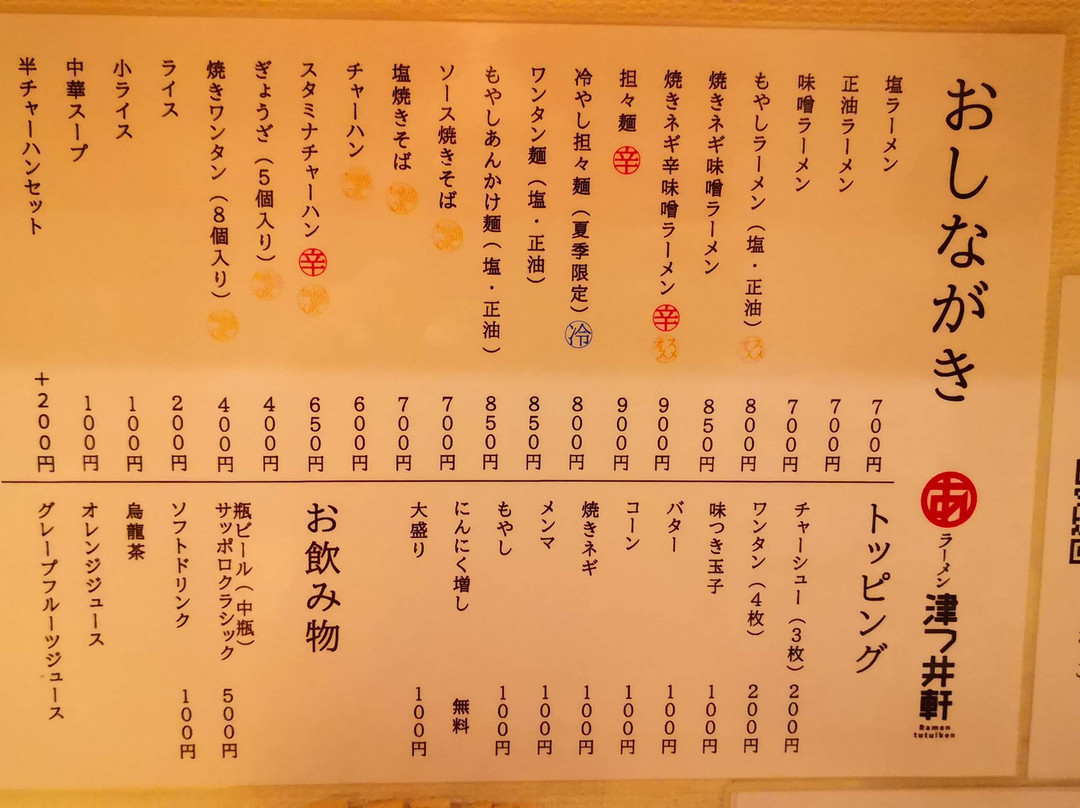 おしながき
塩ラーメン 700円
正油ラーメン 700円
味噌ラーメン 700円
もやしラーメン(塩・正油) オススメ 800円
焼きネギ味噌ラーメン 850円
焼きネギ辛味噌ラーメン 辛 オススメ 900円
担々麺 辛 900円
冷やし担々麺(夏季限定) 冷 800円
ワンタン麺(塩・正油) 850円
もやしあんかけ麺(塩・正油) 850円
ソース焼きそば 700円
塩焼きそば 700円
チャーハン 600円
スタミナチャーハン 辛 650円
ぎょうざ(5個入り) 400円
焼きワンタン(8個入り) 400円
ライス 200円
小ライス 100円
中華スープ 100円
半チャーハンセット +200円
あ ラーメン 津つ井軒
Ramen
tutuiken
トッピング
チャーシュー(3枚) 200円
ワンタン(4枚) 200円
味つき玉子 100円
バター 100円
コーン 100円
焼きネギ 100円
メンマ 100円
もやし 100円
にんにく増し 無料
大盛り 100円
お飲み物
瓶ビール(中瓶)
サッポロクラシック 500円
ソフトドリンク 100円
烏龍茶
オレンジジュース
グレープフルーツジュース